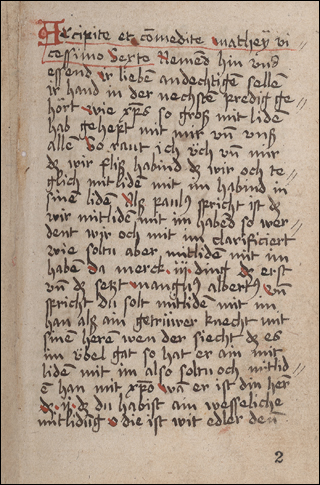 Accipite et cōmedite mathey vi
cessimo Sexto Nemēd hin vnd
essend ir lieben andechtigen sellen
ir hand in der nechsten predig ge
hört wie xp̄s so groß mit liden
hab gehept mit mir vn̄ vnß
allen So raut ich v̈ch vn̄ mir
dz wir fliß habind dz wir och te
glich mitliden mit im habind in
sinē liden Alß paulꝰ spricht ist dz
wir mitliden mit im habēd so wer
dent wir och mit im clarificiert
wie soltu aber mitliden mit im
haben da merck iij ding dz erst
vn̄ dz setzt mangnꝰ albertꝰ vn̄
spricht du solt mitliden mit im
han alß ain getrüwer knecht mit
sinē here wen der siecht dz es
im v̈bel gat so hat er ain mit
liden mit im also soltu och mitlid
ē han mit xp̄o wā er ist din her̄
dz ij dz du habist ain wesseliche
mitlidūg die ist wit edler den̄
2